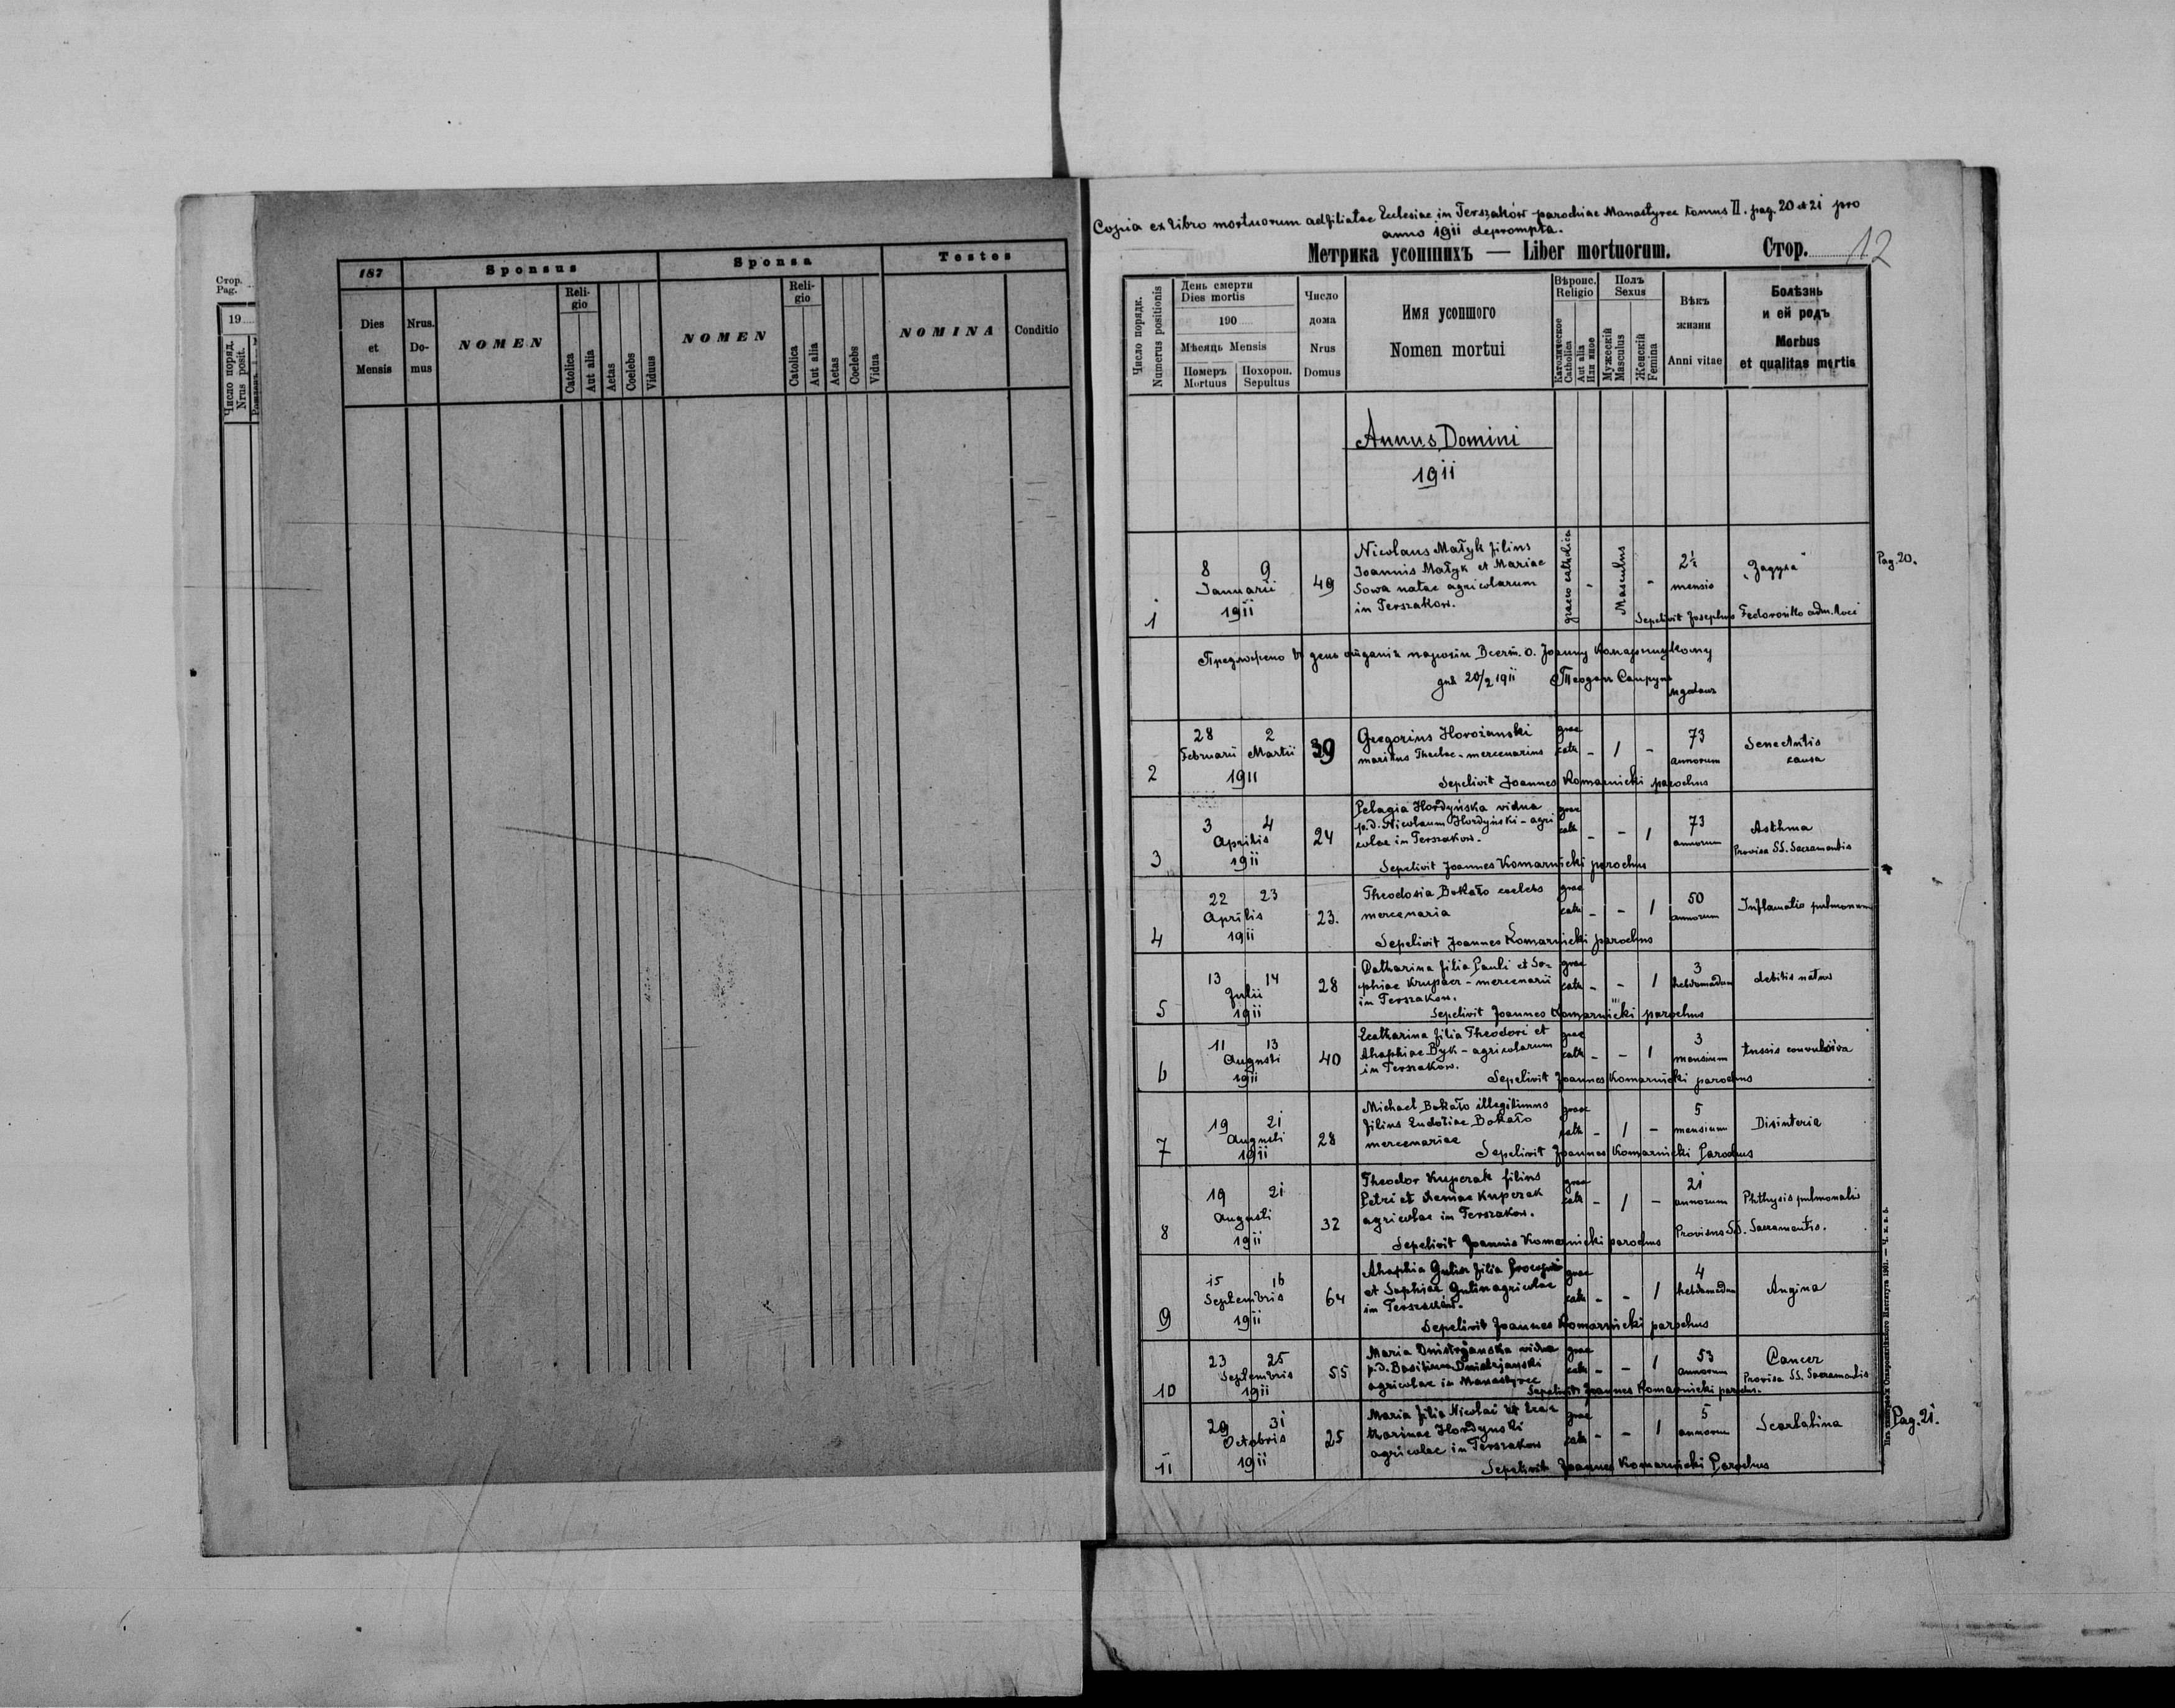 Стор.
Pag.
19
Число поряд.
Nrus posit.
187
Sponsus
Sponsa
Testes
Dies
et
Mensis
Nrus.
Do-
mus
NOMEN
Reli-
gio
Catolica
Aut alia
Aetas
Coelebs
Viduus
NOMEN
Reli-
gio
Catolica
Aut alia
Aetas
Coelebs
Vidua
NOMINA
Conditio
Copia ex libro mortuorum adfiliatae Ecclesiae in Terszaków parochiae Manastyrec tomus II. pag. 20 et 21 pro
anno 1911 deprompta.
Метрика усопшихъ — Liber mortuorum.
Стор. 12
Число порядк.
Numerus positionis
День смерти
Dies mortis
190
Мѣсяць Mensis
Померъ
Mortuus
Похорон.
Sepultus
Число
дома
Nrus
Domus
Имя усопшого
Nomen mortui
Вѣроис.
Religio
Католическое
Catholica
Aut alia
Или иное
Полъ
Sexus
Мужескій
Masculus
Женскій
Femina
Вѣкъ
жизни
Anni vitae
Болѣзнь
и ей родъ
Morbus
et qualitas mortis
Annus Domini
1911
1
8 9
Januarii
1911
49
Nicolaus Małyk filius
Joannis Małyk et Mariae
Sowa natae agricolarum
in Terszakow.
graeco catholica
-
Masculus
-
2½
mensis
"Задуха"
Sepelivit Josephus Fedoronko adm. loci
Pag. 20.
Предложено в день парохіи Всеч. о. Іоанну Комарницкому
дня 20/2 1911
2
28 2
Februarii Martii
1911
39
Gregorius Horożanski
maritus Theclae - mercenarius
grae
cath - 1 -
73
annorum
Senectutis
causa
Sepelivit Joannes Komarnicki parochus
3
3 4
Aprilis
1911
24
Pelagia Hordyńska vidua
p.d. Nicolaum Hordyński - agri
colae in Terszakow.
grae
cath - - 1
73
annorum
Asthma
Provisa SS. Sacramentis
Sepelivit Joannes Komarnicki parochus
4
22 23
Aprilis
1911
23.
Theodosia Bokało coelebs
mercenaria
grae
cath - - 1
50
annorum
Inflamatio pulmonum
Sepelivit Joannes Komarnicki parochus
5
13 14
Julii
1911
28
Catharina filia Pauli et So-
phiae Krupacz - mercenarii
in Terszakow.
grae
cath - - 1
3
hebdomadum
debilis natus
Sepelivit Joannes Komarnicki parochus
6
11 13
Augusti
1911
40
Ecatharina filia Theodori et
Ahaphiae Byk - agricolarum
in Terszakow.
grae
cath - - 1
3
mensium
tussis convulsiva
Sepelivit Joannes Komarnicki parochus
7
19 21
Augusti
1911
28
Michael Bokało illegitimus
filius Eudoxiae Bokało
mercenariae
grae
cath - 1 -
5
mensium
Disinteria
Sepelivit Joannes Komarnicki Parochus
8
19 21
Augusti
1911
32
Theodor Kuperak filius
Petri et Kuperak
agricolae in Terszakow.
grae
cath - 1 -
21
annorum
Phthysis pulmonalis
Provisus SS. Sacramentis.
Sepelivit Joannis Komarnicki parochus
9
15 16
Septembris
1911
64
Ahaphia Gulin filia Procopii
et Sophiae Gulin agricolae
in Terszaków.
grae
cath - - 1
4
hebdomadum
Angina
Sepelivit Joannes Komarnicki parochus
10
23 25
Septembris
1911
55
Maria Dnistrjanska vidua
p.d. Basilium Dnistrjanski
agricolae in Manastyrec
grae
cath - - 1
53
annorum
Cancer
Provisa SS. Sacramentis
Sepelivit Joannes Komarnicki paroch.
11
29 31
Octobris
1911
25
Maria filia Nicolai et Eca-
tharinae Hordynski
agricolae in Terszakow
grae
cath - - 1
5
annorum
Scarlatina
Sepelivit Joannes Komarnicki Parochus
Pag. 21.
Изъ типографіи Ставропигійского Института 1901.